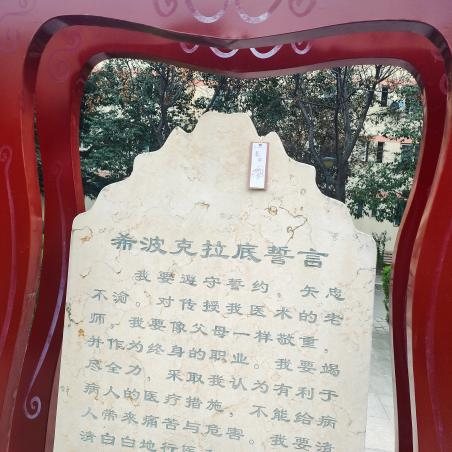 希波克拉底誓言
我要遵守誓约，矢忠
不渝。对传授我医术的老
师，我要像父母一样敬重，
并作为终身的职业。我要竭
尽全力，采取我认为有利于
病人的医疗措施，不能给病
人带来痛苦与危害。我要清
清白白地行医